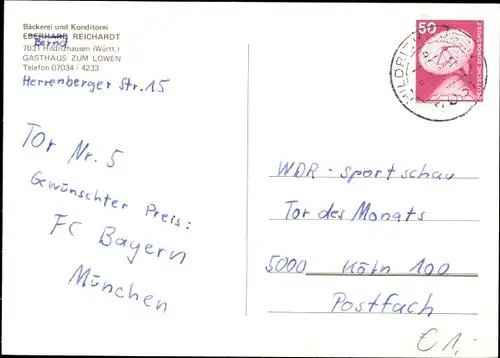 Bäckerei und Konditorei
EBERHARD REICHARDT
Bernd
7031 Hildrizhausen (Württ.)
GASTHAUS ZUM LÖWEN
Telefon 07034 / 4233
Herrenberger Str. 15
Tor Nr. 5
Gewünschter Preis:
FC Bayern
München
50
DEUTSCHE BUNDESPOST
WDR - Sportschau
Tor des Monats
5000 Köln 100
Postfach
€ 1,-